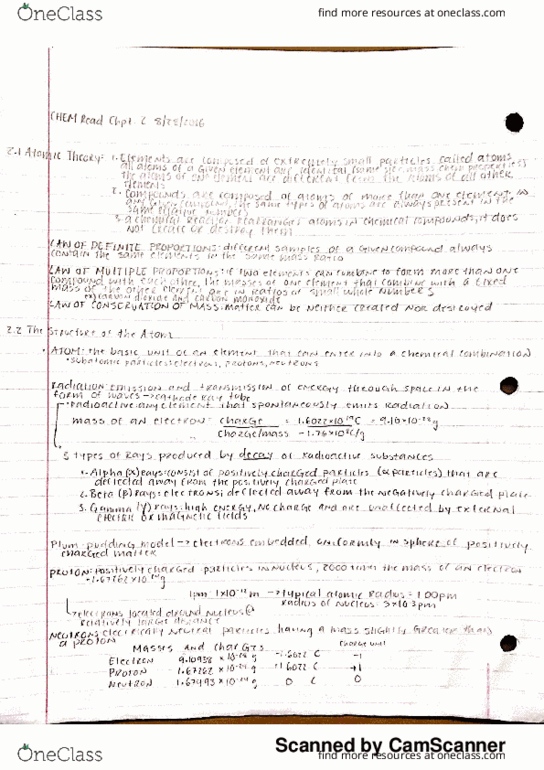 OneClass
find more resources at oneclass.com
CHEM Read Chpt. 2 8/28/2016
2.1 Atomic Theory: 1. Elements are composed of extremely small particles called atoms.
all atoms of a given element are identical, same size, mass chem properties
the atoms of one element are different from the atoms of all other
elements
2. Compounds are composed of atoms of more than one element. In
any given compound, the same types of atoms are always present in the
same relative numbers
3. a chemical reaction rearranges atoms in chemical compounds, it does
not create or destroy them
LAW OF DEFINITE PROPORTIONS: different samples of a given compound always
contain the same elements in the same mass ratio
LAW OF MULTIPLE PROPORTIONS: if two elements can combine to form more than one
compound with each other, the masses of one element that combine with a fixed
mass of the other element are in ratios of small whole numbers
ex) carbon dioxide and carbon monoxide
LAW OF CONSERVATION OF MASS: matter can be neither created nor destroyed
2.2 The Structure of the Atom
• ATOM: the basic unit of an element that can enter into a chemical combination
• subatomic particles: electrons, protons, neutrons
radiation: emission and transmission of energy through space in the
form of waves → cathode ray tube
radioactive: any element that spontaneously emits radiation
mass of an electron: charge = =
charge/mass
3 types of rays produced by decay of radioactive substances
1. Alpha (α) rays: consist of positively charged particles (α particles) that are
deflected away from the positively charged plate
2. Beta (β) rays: electrons: deflected away from the negatively charged plate
3. Gamma (γ) rays: high energy, no charge and are unaffected by external
electric or magnetic fields
Plum-pudding model → electrons embedded uniformly in sphere of positively
charged matter
PROTON: positively charged particles in nucleus, 2000 times the mass of an electron
1pm = 1x10⁻¹² m → typical atomic radius = 100pm
radius of nucleus = 5x10⁻³ pm
electrons located around nucleus @
relatively large distance
NEUTRONS: electrically neutral particles having a mass slightly greater than
a proton
Masses and charges charge unit
Electron -1
Proton +1
Neutron 0 C 0
Scanned by CamScanner
OneClass
find more resources at oneclass.com